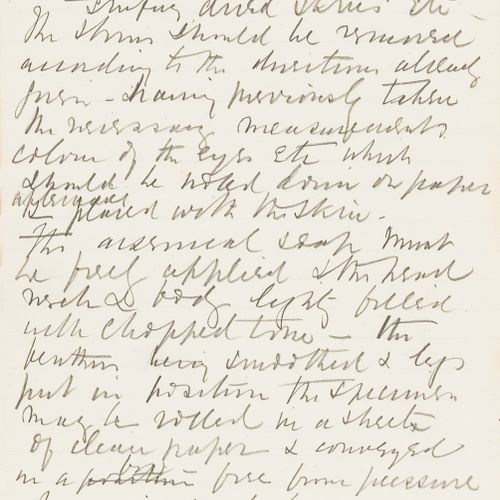 Stuffing dried Skins Etc
The Skins should be removed
according to the directions already
given - having previously taken
the necessary measurements
colour of the eyes Etc which
should be noted down on paper
afterwards
& placed with the Skin.
The arsenical soap must
be freely applied & the head
neck & body lightly filled
with chopped tow - the
feathers being smoothed & legs
put in position the specimen
may be rolled in a sheet
of clean paper & conveyed
in a box free from pressure